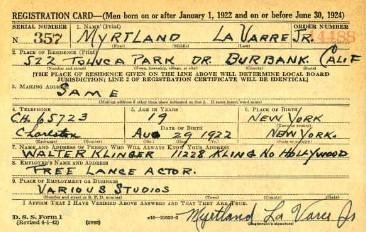 REGISTRATION CARD—(Men born on or after January 1, 1922 and on or before June 30, 1924)
SERIAL NUMBER 1. NAME (Print) ORDER NUMBER
N 357 MYRTLAND LA VARRE JR.
(First) (Middle) (Last)
2. PLACE OF RESIDENCE (Print)
522 TOLUCA PARK DR BURBANK CALIF
[THE PLACE OF RESIDENCE GIVEN ON THE LINE ABOVE WILL DETERMINE LOCAL BOARD
JURISDICTION; LINE 2 OF REGISTRATION CERTIFICATE WILL BE IDENTICAL]
3. MAILING ADDRESS
SAME
4. TELEPHONE 5. AGE IN YEARS 6. PLACE OF BIRTH
CH. 65723 19 NEW YORK
DATE OF BIRTH
29 1922 NEW YORK.
7. NAME AND ADDRESS OF PERSON WHO WILL ALWAYS KNOW YOUR ADDRESS
WALTER KLINGER 11228 KLING NO HOLLYWOOD
8. EMPLOYER'S NAME AND ADDRESS
FREE LANCE ACTOR.
9. PLACE OF EMPLOYMENT OR BUSINESS
VARIOUS STUDIOS
I AFFIRM THAT I HAVE VERIFIED ABOVE ANSWERS AND THAT THEY ARE TRUE.
D. S. S. Form 1
(Revised 6-1-42) (over) Myrtland La Varre Jr